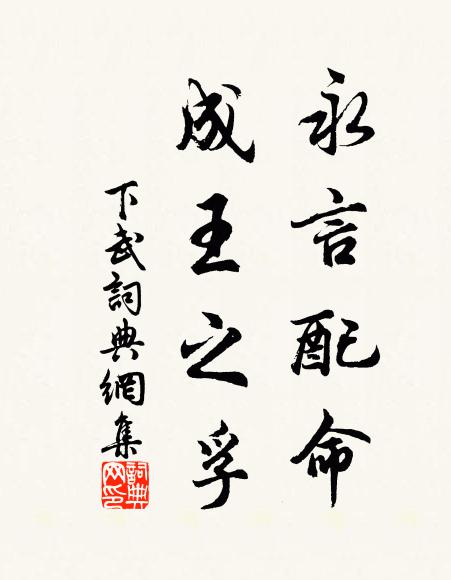 永言配命
成王之孚
下武詞典網集
詞典网印